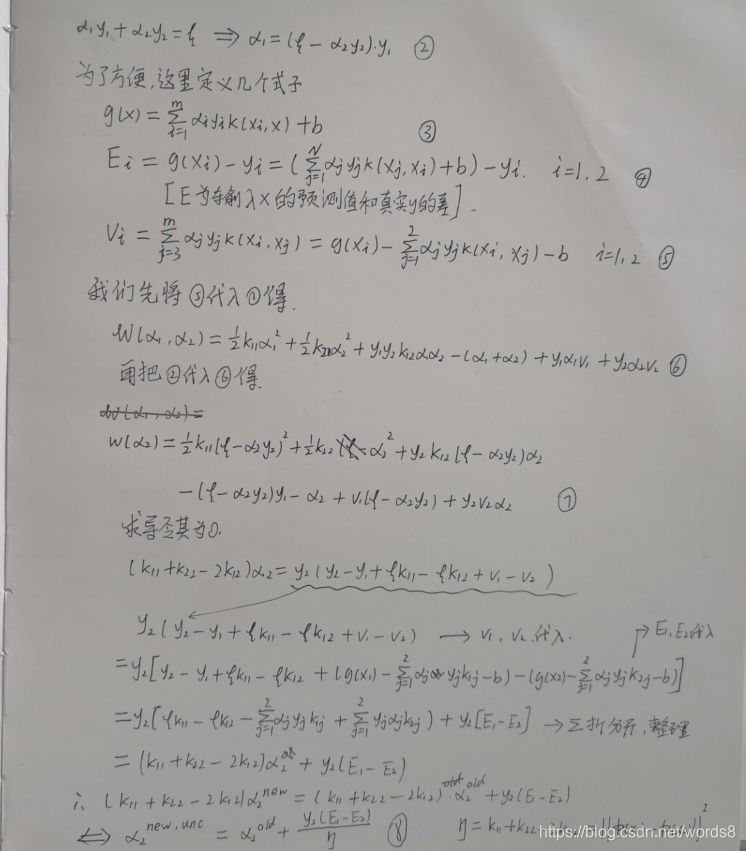 α₁y₁ + α₂y₂ = ξ ⇒ α₁ = (ξ - α₂y₂)·y₁ ②
为了方便,这里定义几个式子
g(x) = Σ_{i=1}^{m} αᵢyᵢk(xᵢ, x) + b ③
Eᵢ = g(xᵢ) - yᵢ = (Σ_{j=1}^{N} αⱼyⱼk(xⱼ, xᵢ) + b) - yᵢ. i=1, 2 ④
[E为输入x的预测值和真实y的差].
Vᵢ = Σ_{j=3}^{m} αⱼyⱼk(xᵢ, xⱼ) = g(xᵢ) - Σ_{j=1}^{2} αⱼyⱼk(xᵢ, xⱼ) - b i=1, 2 ⑤
我们先将⑤代入①得.
W(α₁, α₂) = ½k₁₁α₁² + ½k₂₂α₂² + y₁y₂k₁₂α₁α₂ - (α₁+α₂) + y₁α₁v₁ + y₂α₂v₂ ⑥
再把②代入⑥得.
W(α₁, α₂) =
W(α₂) = ½k₁₁(ξ-α₂y₂)² + ½k₂₂ α₂² + y₂k₁₂(ξ-α₂y₂)α₂
-(ξ-α₂y₂)y₁ - α₂ + v₁(ξ-α₂y₂) + y₂v₂α₂ ⑦
求导否其为0.
(k₁₁+k₂₂-2k₁₂)α₂ = y₂(y₂-y₁+ξk₁₁-ξk₁₂+v₁-v₂)
y₂(y₂-y₁+ξk₁₁-ξk₁₂+v₁-v₂) → v₁, v₂代入. E₁, E₂代入
=y₂[y₂-y₁+ξk₁₁-ξk₁₂ + (g(x₁)-Σ_{j=1}^{2} αⱼyⱼk₁ⱼ-b) - (g(x₂)-Σ_{j=1}^{2} αⱼyⱼk₂ⱼ-b)]
=y₂[ξk₁₁-ξk₁₂-Σ_{j=1}^{2} αⱼyⱼk₁ⱼ + Σ_{j=1}^{2} yⱼαⱼk₂ⱼ) + y₂[E₁-E₂] → Σ拆分开,整理
= (k₁₁+k₂₂-2k₁₂)α₂^{old} + y₂(E₁-E₂)
∴ (k₁₁+k₂₂-2k₁₂)α₂^{new} = (k₁₁+k₂₂-2k₁₂)^{old}·α₂^{old} + y₂(E₁-E₂)
⇔ α₂^{new,unc} = α₂^{old} + y₂(E₁-E₂)/η ⑧ η = k₁₁+k₂₂
https://blog.csdn.net/words8